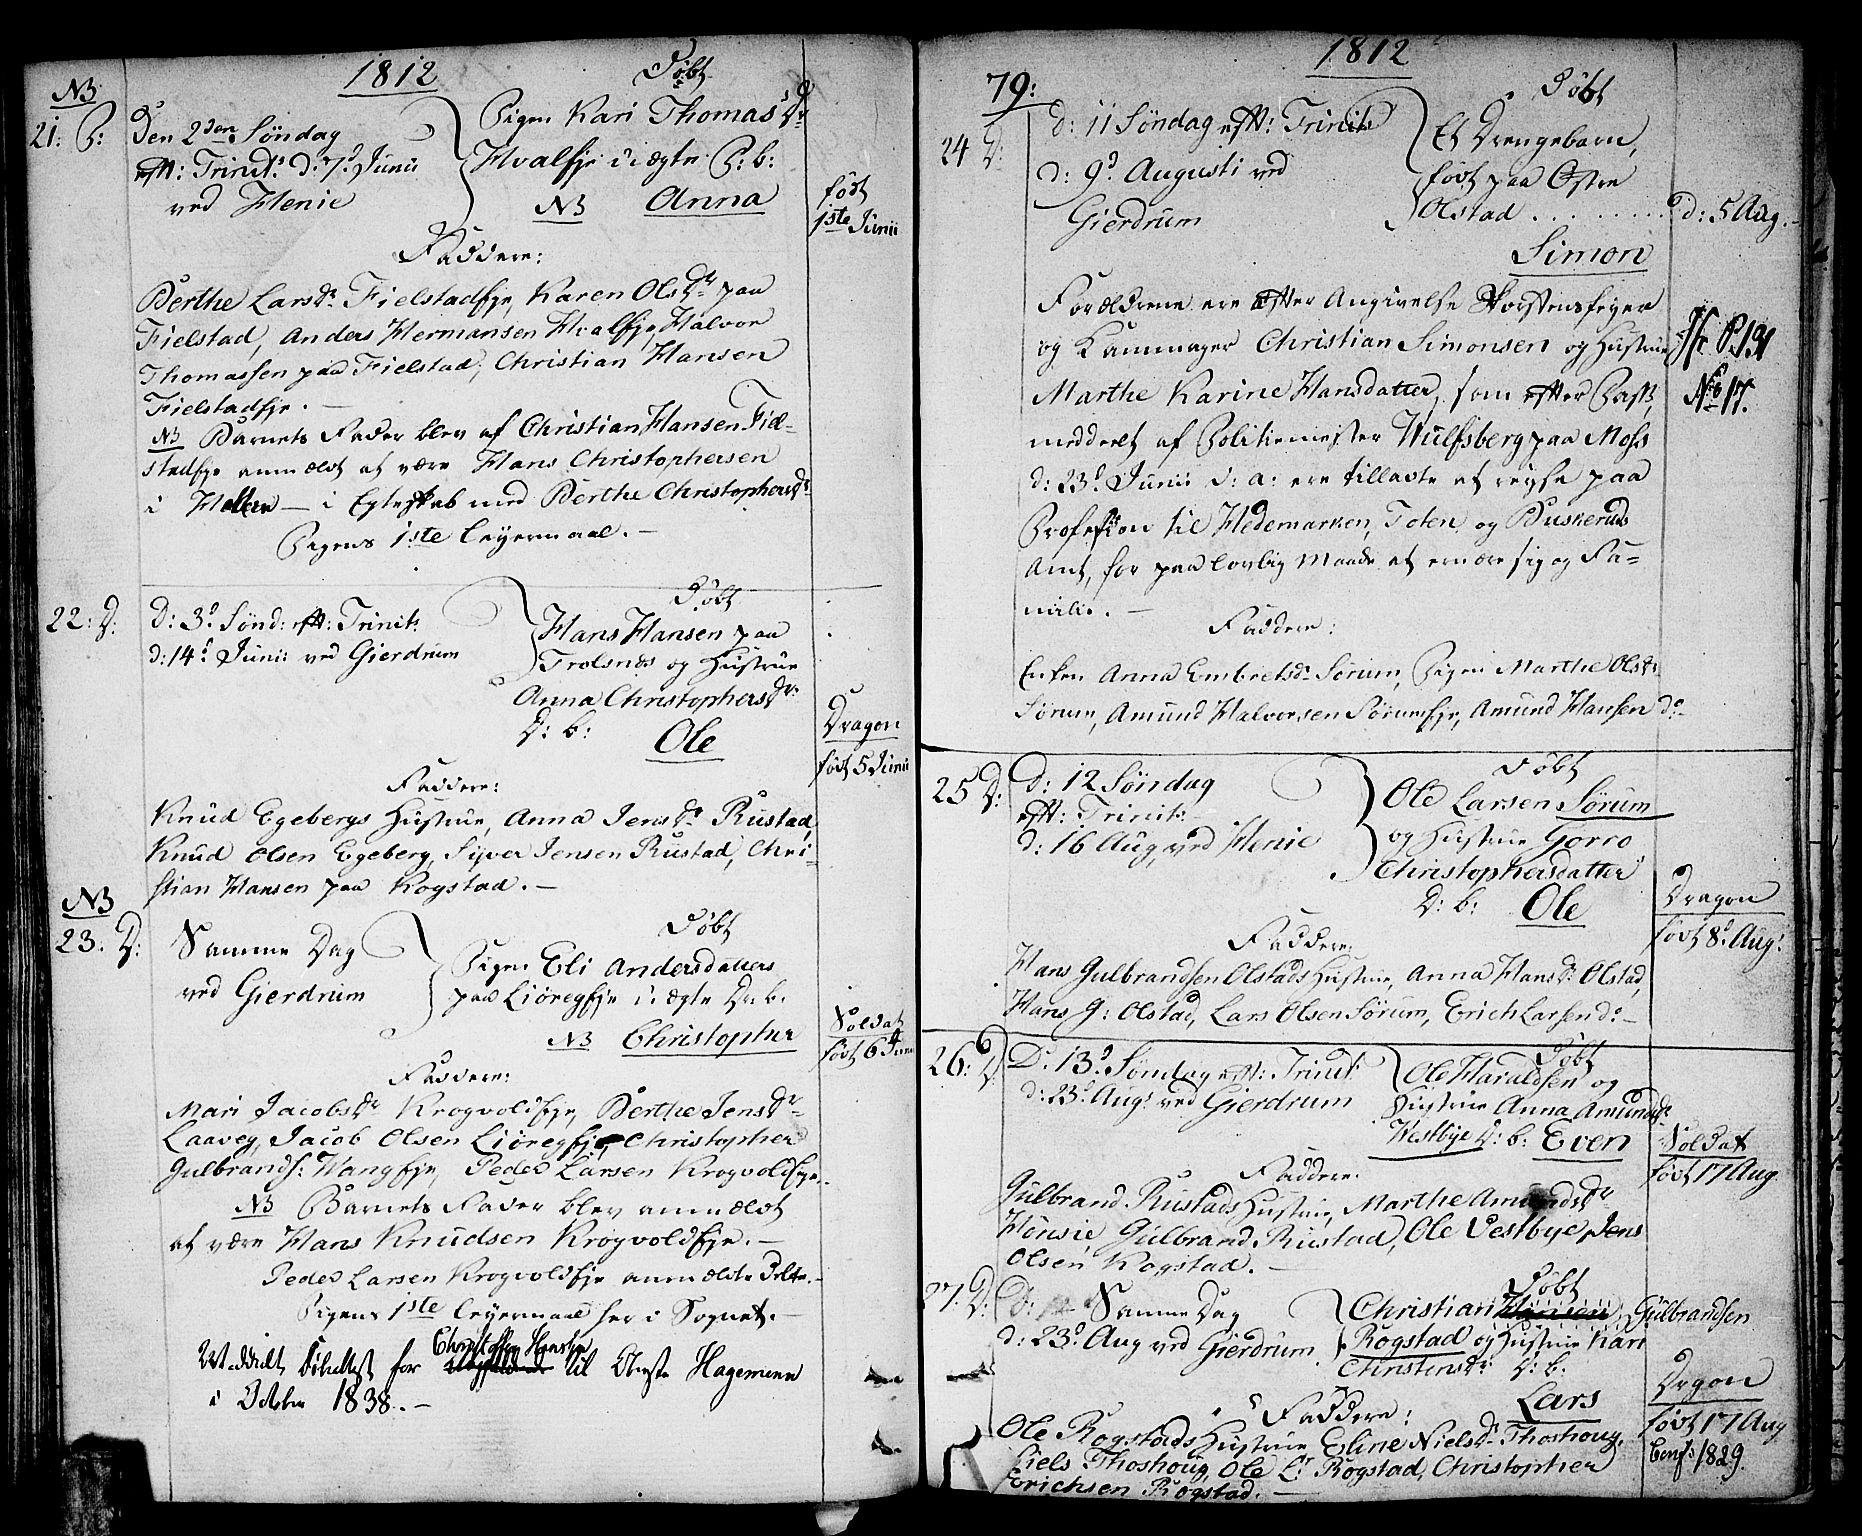 1812
NB
21. P:
Den 2den Søndag
eft: Trinit: d: 7d Junii
ved Henie
Døbt
Pigen Kari Thomas Dr
Hvalseje i ægte P: b:
NB Anna
født
1ste Junii
Faddere:
Berthe Lars Dr Fielstadeje, Karen Ols Dr paa
Fielstad, Anders Hermansen Hvaleje, Halvor
Thomassen paa Fielstad, Christian Hansen
Fielstadeje. —
NB Barnets Fader blev af Christian Hansen Fiel-
stadeje anmældt at være Hans Christophersen
i — i Egteskab med Berthe Christophers Dr
Pigens 1ste Leyermaal. —
22: D:
D: 3d Sønd: eft: Trinit:
d: 14d Junii ved Gierdrum
Døbt
Hans Hansen paa
Trolsnæs og Hustrue
Anna Christophers Dr
D: b: Ole
Dragon
født 5 Junii
Faddere:
Knud Egebergs Hustrue, Anna Jens Dr Rustad,
Knud Olsen Egeberg, Siver Jensen Rustad, Chri-
stian Hansen paa Rogstad. —
NB
23. D:
Samme Dag
ved Gierdrum
Døbt
Pigen Eli Andersdatters
paa Liøregeje i ægte Dr: b:
NB Christopher
Soldat
født 6 Junii
Faddere:
Mari Jacobs Dr Krogvoldeje, Berthe Jens Dr
Laavey, Jacob Olsen Liøregeje, Christopher
Gulbrands: Wangeje, Peder Larsen Krogvoldeje.
NB Barnets Fader blev anmældt
at være Hans Knudsen Krogvoldeje. —
Peder Larsen Krogvoldeje anmældte Dette. —
Pigens 1ste Leyermaal her i Sognet. —
Meddelt Døbeattest for Christoffer til Hagemann
i October 1838. —
79:
1812
24 D:
d: 11 Søndag eft: Trinit:
d: 9d Augusti ved
Gierdrum
Døbt
Et Drengebarn,
født paa Østre
Olstad . . . . . . . . d: 5 Aug. —
Simon
Forældrene ere efter Angivelse Skorstensfeyer
og Kammager Christian Simonsen og Hustrue
Marthe Karine Hansdatter, som efter Pass,
meddeelt af Politiemester Wulfsberg paa Moss
d: 23d Junii d: a: ere tilladte at reyse paa
Profession til Hedemarken, Toten og Buskeruds
Amt, for paa lovlig Maade at ernære sig og Fa-
milie. —
Jfr P. 191
No 17.
Faddere:
Enken Anna Embrets Dr Sørum, Pigen Marthe Ols Dr
Sørum, Amund Halvorsen Sørumeje, Amund Hansen do —
25 D:
D: 12 Søndag
eft: Trinit:
d: 16 Aug, ved Henie
Døbt
Ole Larsen Sørum
og Hustrue Gorro
Christophersdatter
D: b: Ole
Dragon
født 8d Aug:
Faddere:
Hans Gulbrandsen Olstads Hustrue, Anna Hans Dr Olstad,
Hans G: Olstad, Lars Olsen Sørum, Erich Larsen do —
26: D
D: 13d Søndag eft: Trinit:
d: 23d Aug: ved Gierdrum
Døbt
Ole Haraldsen og
Hustrue Anna Amunds Dr
Westbye D: b: Even
Soldat
født 17 Aug
Faddere:
Gulbrand Rustads Hustrue, Marthe Amunds Dr
Hønsie, Gulbrand Rustad, Ole Vestbye, Jens
Olsen Rogstad. —
27. D:
D: Samme Dag
d: 23d Aug ved Gierdrum
Døbt
Christian Hansen Gulbrandsen
Rogstad og Hustrue Kari
Christens Dr D: b:
Lars
Dragon
født 17 Aug
Conf: 1829.
Faddere:
Ole Rogstads Hustrue, Eline Niels Dr Thoshoug,
Niels Thoshoug, Ole Lr Rogstad, Christopher
Erichsen Rogstad. —